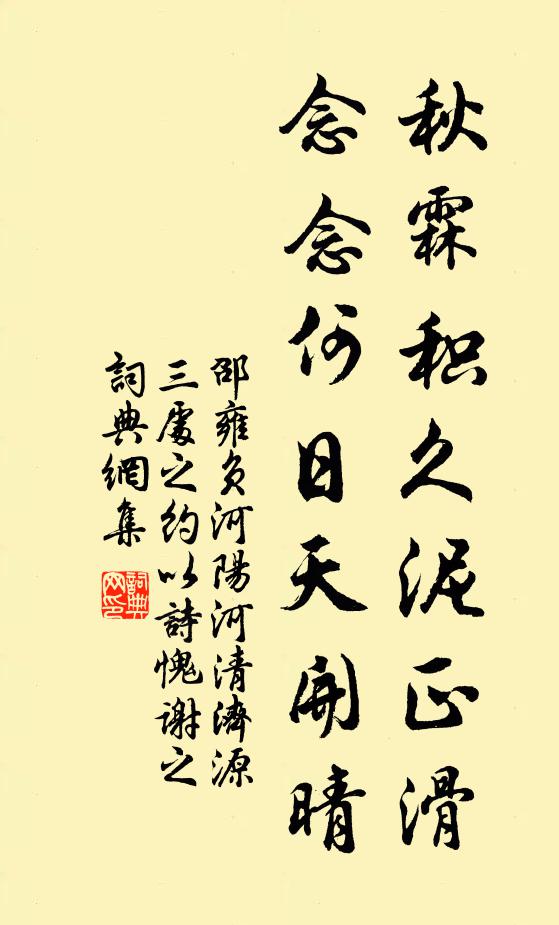 秋霖积久泥正滑
念念何日天開晴
邵雍负河陽河清濟源
三處之約以詩愧谢之
詞典網集
詞典网印